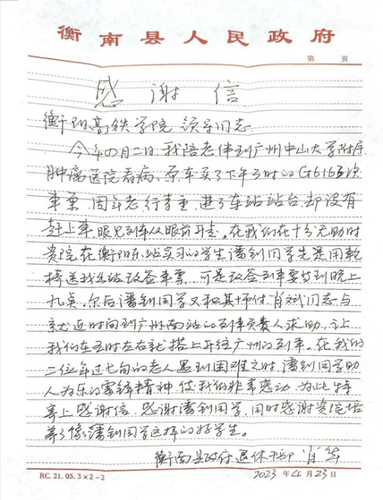 衡南县人民政府
第 页
感谢信
衡阳高铁学院 领导同志
今年4月二日,我陪老伴到广州中山大学附属
肿瘤医院看病,原车买了下午三时的G6163次
车票,因年老行李重,进了车站站台,却没有
赶上车,眼见列车从眼前开走。在我们在十分无助时
贵院在衡阳东站实习的学生潘钊同学先是用轮
椅送我出站改签车票,可是改签列车要等到晚上
九点,尔后潘钊同学又和其师付肖斌同志与
就近时间到广州南站的列车负责人求助,让
我们在五时左右就搭上开往广州的列车。在我们
二位年过七旬的老人遇到困难之时,潘钊同学助
人为乐的雷锋精神,使我们非常感动,为此特
寄上感谢信,感谢潘钊同学,同时感谢贵院培
养了像潘钊同学这样的好学生。
衡南县政府退休干部 肖
2023年4月23日
RC. 21. 05. 3×2-2